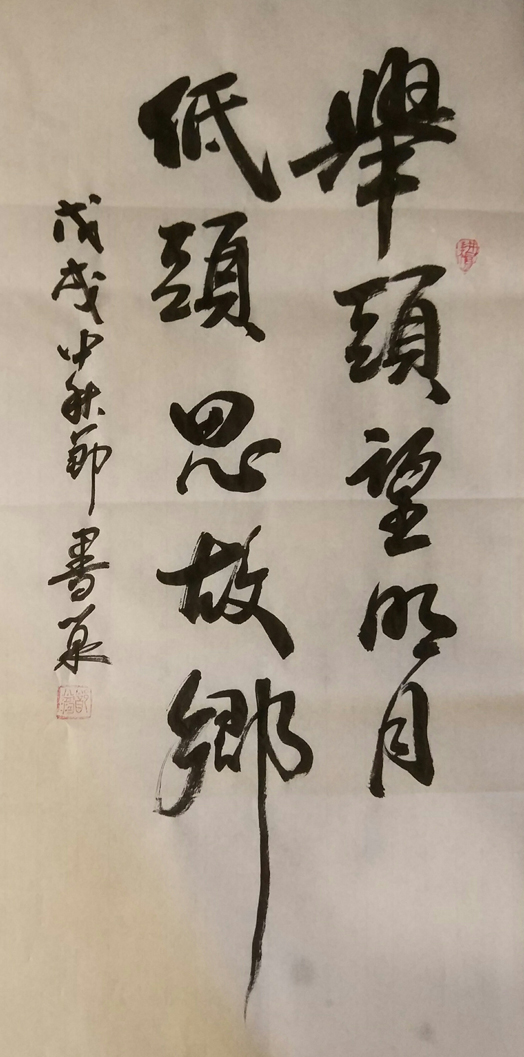 舉頭望明月
低頭思故鄉
戊戌中秋節書